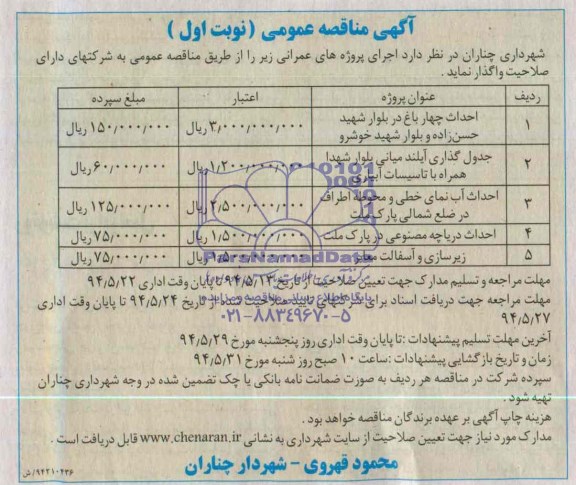 آگهی مناقصه عمومی ( نوبت اول )
شهرداری چناران در نظر دارد اجرای پروژه های عمرانی زیر را از طریق مناقصه عمومی به شرکتهای دارای
صلاحیت واگذار نماید .
ردیف عنوان پروژه اعتبار مبلغ سپرده
۱ احداث چهار باغ در بلوار شهید حسن‌زاده و بلوار شهید خوشرو ۳/۰۰۰/۰۰۰/۰۰۰ ریال ۱۵۰/۰۰۰/۰۰۰ ریال
۲ جدول گذاری آیلند میانی بلوار شهدا همراه با تاسیسات آبیاری ۱/۲۰۰/۰۰۰/۰۰۰ ریال ۶۰/۰۰۰/۰۰۰ ریال
۳ احداث آب نمای خطی و محوطه اطراف در ضلع شمالی پارک ملت ۲/۵۰۰/۰۰۰/۰۰۰ ریال ۱۲۵/۰۰۰/۰۰۰ ریال
۴ احداث دریاچه مصنوعی در پارک ملت ۱/۵۰۰/۰۰۰/۰۰۰ ریال ۷۵/۰۰۰/۰۰۰ ریال
۵ زیرسازی و آسفالت معابر ۱/۵۰۰/۰۰۰/۰۰۰ ریال ۷۵/۰۰۰/۰۰۰ ریال
مهلت مراجعه و تسلیم مدارک جهت تعیین صلاحیت از تاریخ ۹۴/۵/۱۳ تا پایان وقت اداری ۹۴/۵/۲۲
مهلت مراجعه جهت دریافت اسناد برای شرکتهای تایید صلاحیت شده از تاریخ ۹۴/۵/۲۴ تا پایان وقت اداری
۹۴/۵/۲۷
آخرین مهلت تسلیم پیشنهادات : تا پایان وقت اداری روز پنجشنبه مورخ ۹۴/۵/۲۹
زمان و تاریخ بازگشایی پیشنهادات : ساعت ۱۰ صبح روز شنبه مورخ ۹۴/۵/۳۱
سپرده شرکت در مناقصه هر ردیف به صورت ضمانت نامه بانکی یا چک تضمین شده در وجه شهرداری چناران
تهیه شود .
هزینه چاپ آگهی بر عهده برندگان مناقصه خواهد بود .
مدارک مورد نیاز جهت تعیین صلاحیت از سایت شهرداری به نشانی www.chenaran.ir قابل دریافت است .
محمود قهروی - شهردار چناران
۹۴۲۱۰۴۳۶/ش
ParsNamadData
۰۲۱-۸۸۳۴۹۶۷۰-۵